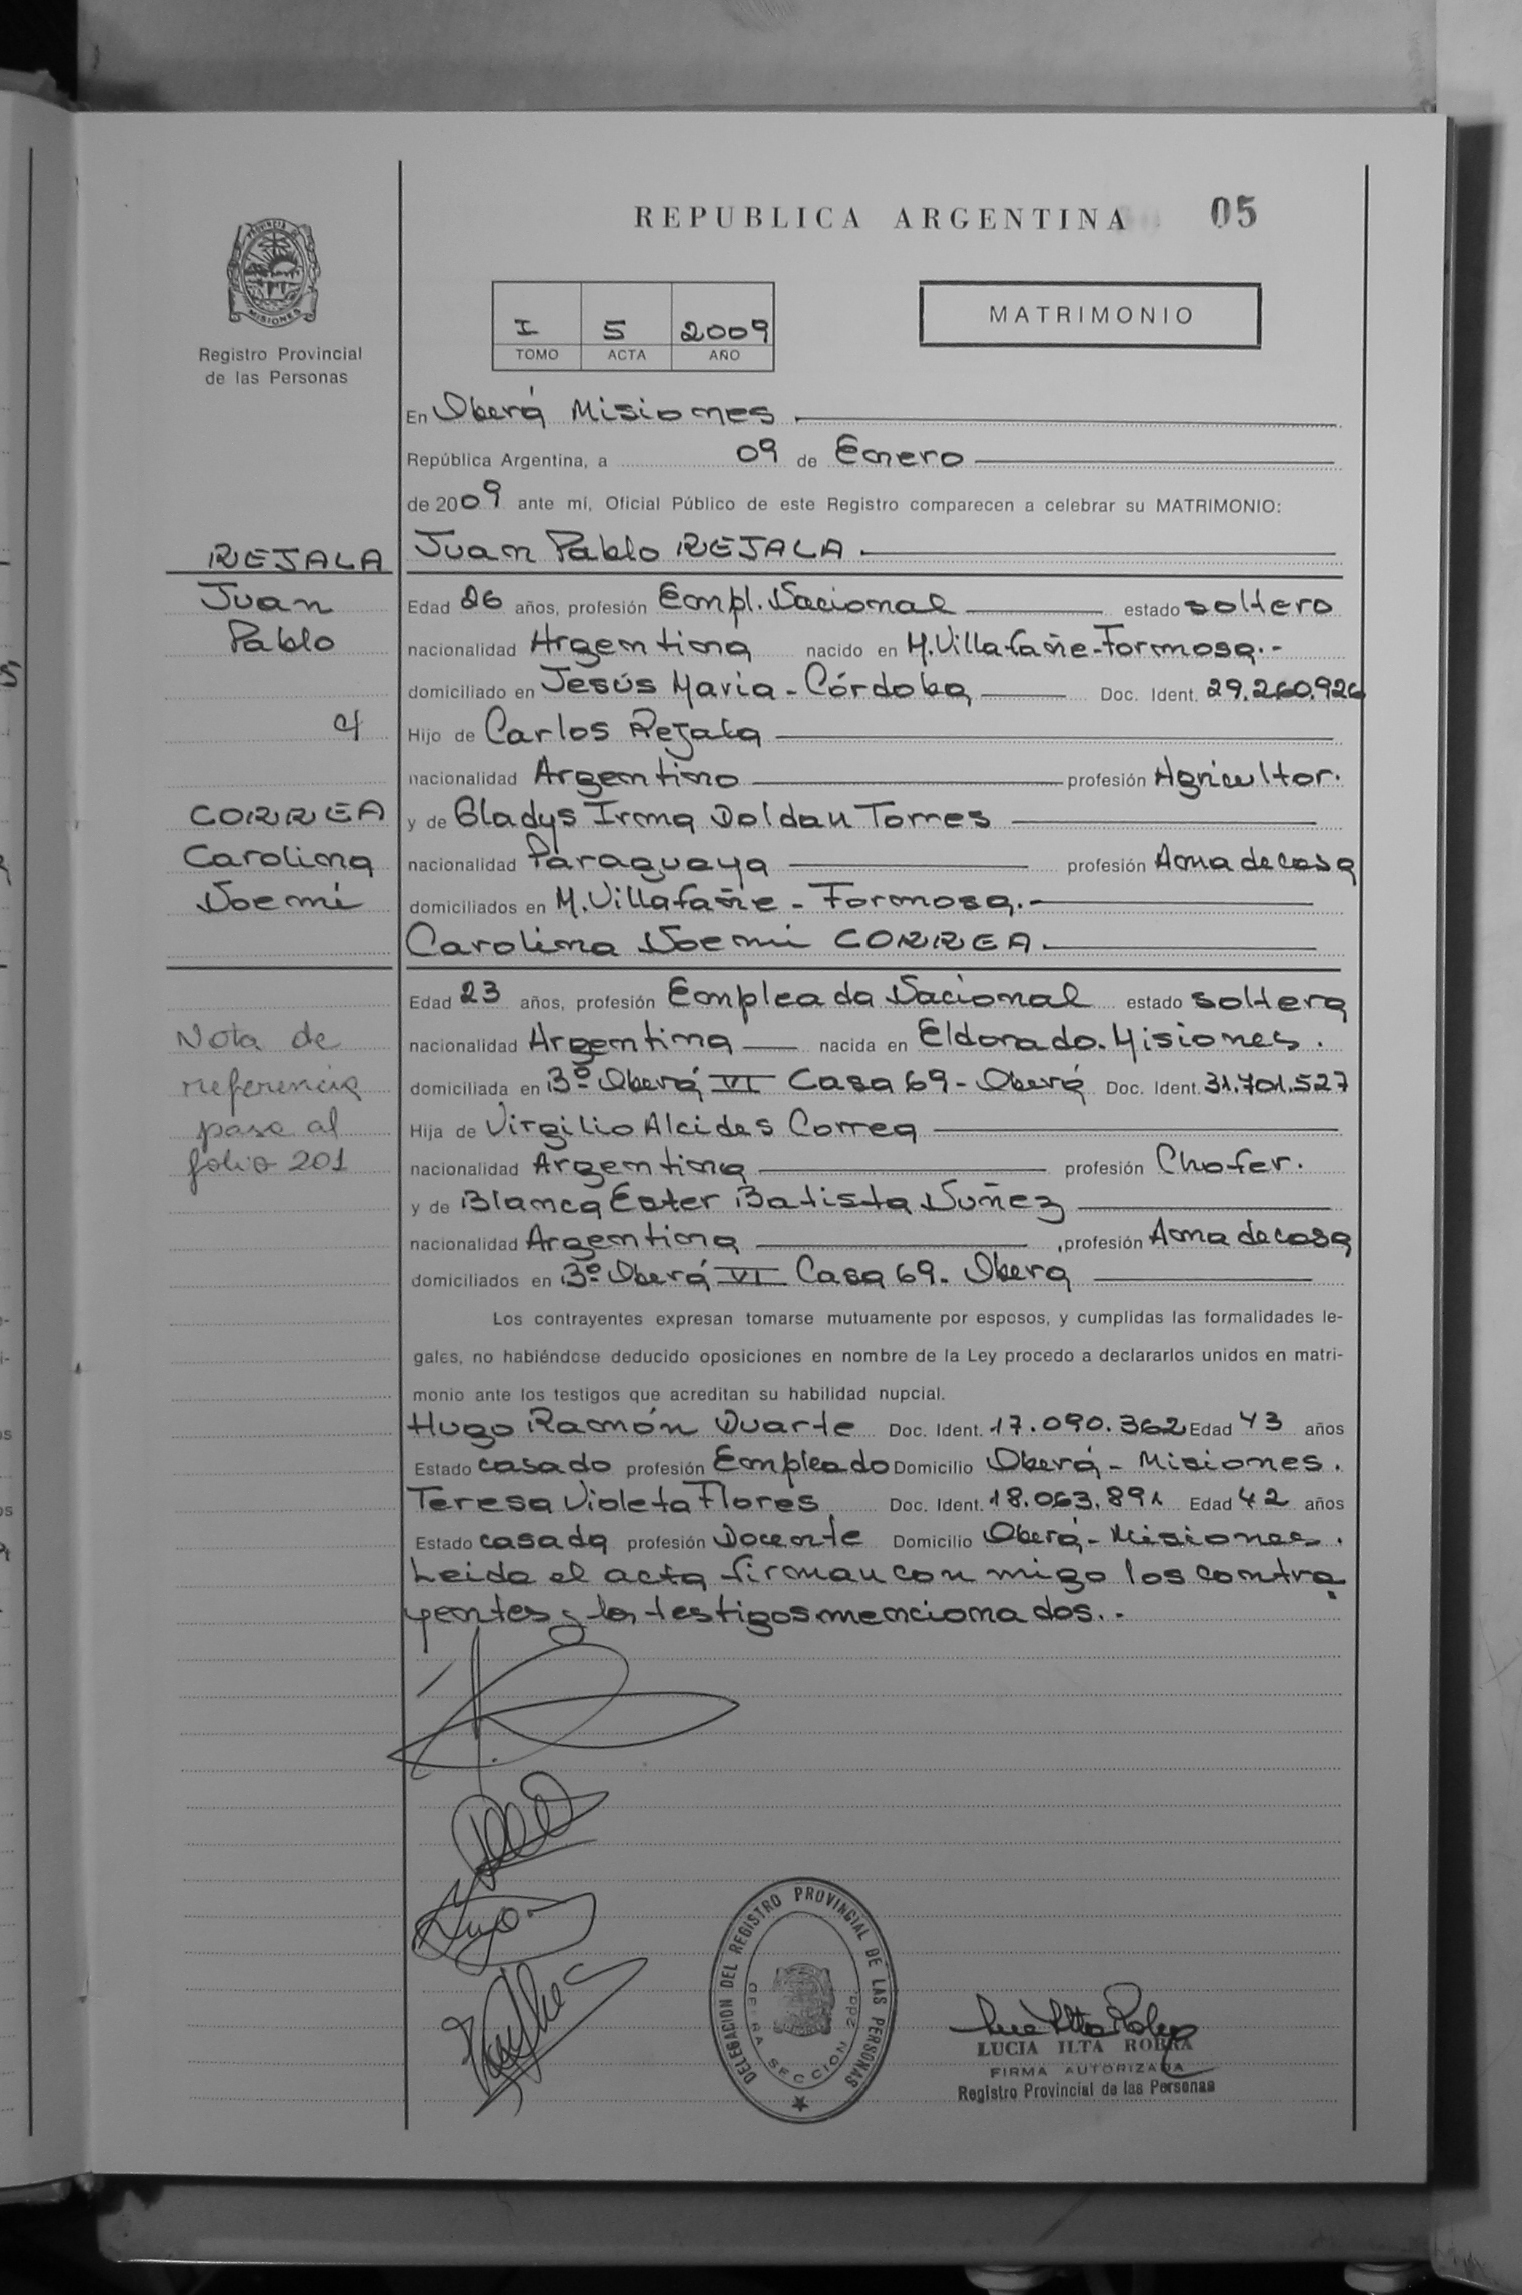 REPUBLICA ARGENTINA 05
PROVINCIA DE
MISIONES
Registro Provincial
de las Personas
I 5 2009
TOMO ACTA AÑO
MATRIMONIO
En Oberá Misiones.
República Argentina, a 09 de Enero
de 2009 ante mí, Oficial Público de este Registro comparecen a celebrar su MATRIMONIO:
REJALA
Juan
Pablo
c/
CORREA
Carolina
Noemi
Nota de
referencia
pasa al
folio 201
Juan Pablo REJALA.
Edad 26 años, profesión Empl. Nacional estado soltero
nacionalidad Argentina nacido en M. Villafañe-Formosa.-
domiciliado en Jesús Maria - Córdoba Doc. Ident. 29.260.926
Hijo de Carlos Rejala
nacionalidad Argentino profesión Agricultor.
y de Gladys Irma Doldan Torres
nacionalidad Paraguaya profesión Ama de casa
domiciliados en M. Villafañe - Formosa.-
Carolina Noemi CORREA.
Edad 23 años, profesión Empleada Nacional estado soltera
nacionalidad Argentina nacida en Eldorado. Misiones.
domiciliada en Bº Oberá VI Casa 69 - Oberá Doc. Ident. 31.701.527
Hija de Virgilio Alcides Correa
nacionalidad Argentina profesión Chofer.
y de Blanca Ester Batista Nuñez
nacionalidad Argentina profesión Ama de casa
domiciliados en Bº Oberá VI Casa 69. Obera
Los contrayentes expresan tomarse mutuamente por esposos, y cumplidas las formalidades le-
gales, no habiéndose deducido oposiciones en nombre de la Ley procedo a declararlos unidos en matri-
monio ante los testigos que acreditan su habilidad nupcial.
Hugo Ramón Duarte Doc. Ident. 17.090.362 Edad 43 años
Estado casado profesión Empleado Domicilio Oberá - Misiones.
Teresa Violeta Flores Doc. Ident. 18.063.891 Edad 42 años
Estado casada profesión Docente Domicilio Oberá - Misiones.
Leida el acta firman con migo los contra
yentes y los testigos mencionados.-
DELEGACION DEL REGISTRO PROVINCIAL DE LAS PERSONAS
SECCION 2da.
LUCIA ILTA ROBRA
FIRMA AUTORIZADA
Registro Provincial de las Personas